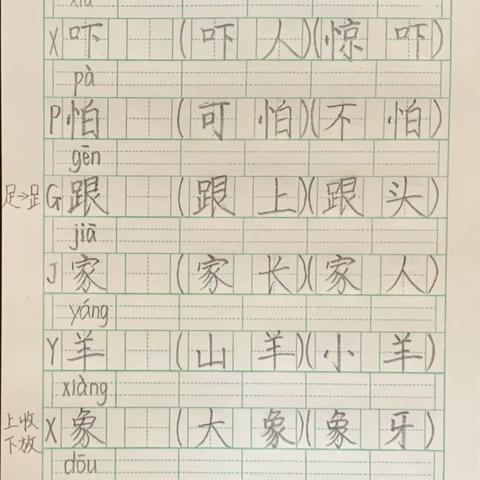 xià
X 吓 (吓人)(惊吓)
pà
P 怕 (可怕)(不怕)
gēn
足→𧾷 G 跟 (跟上)(跟头)
jiā
J 家 (家长)(家人)
yáng
Y 羊 (山羊)(小羊)
xiàng
上收 X 象 (大象)(象牙)
下放
dōu